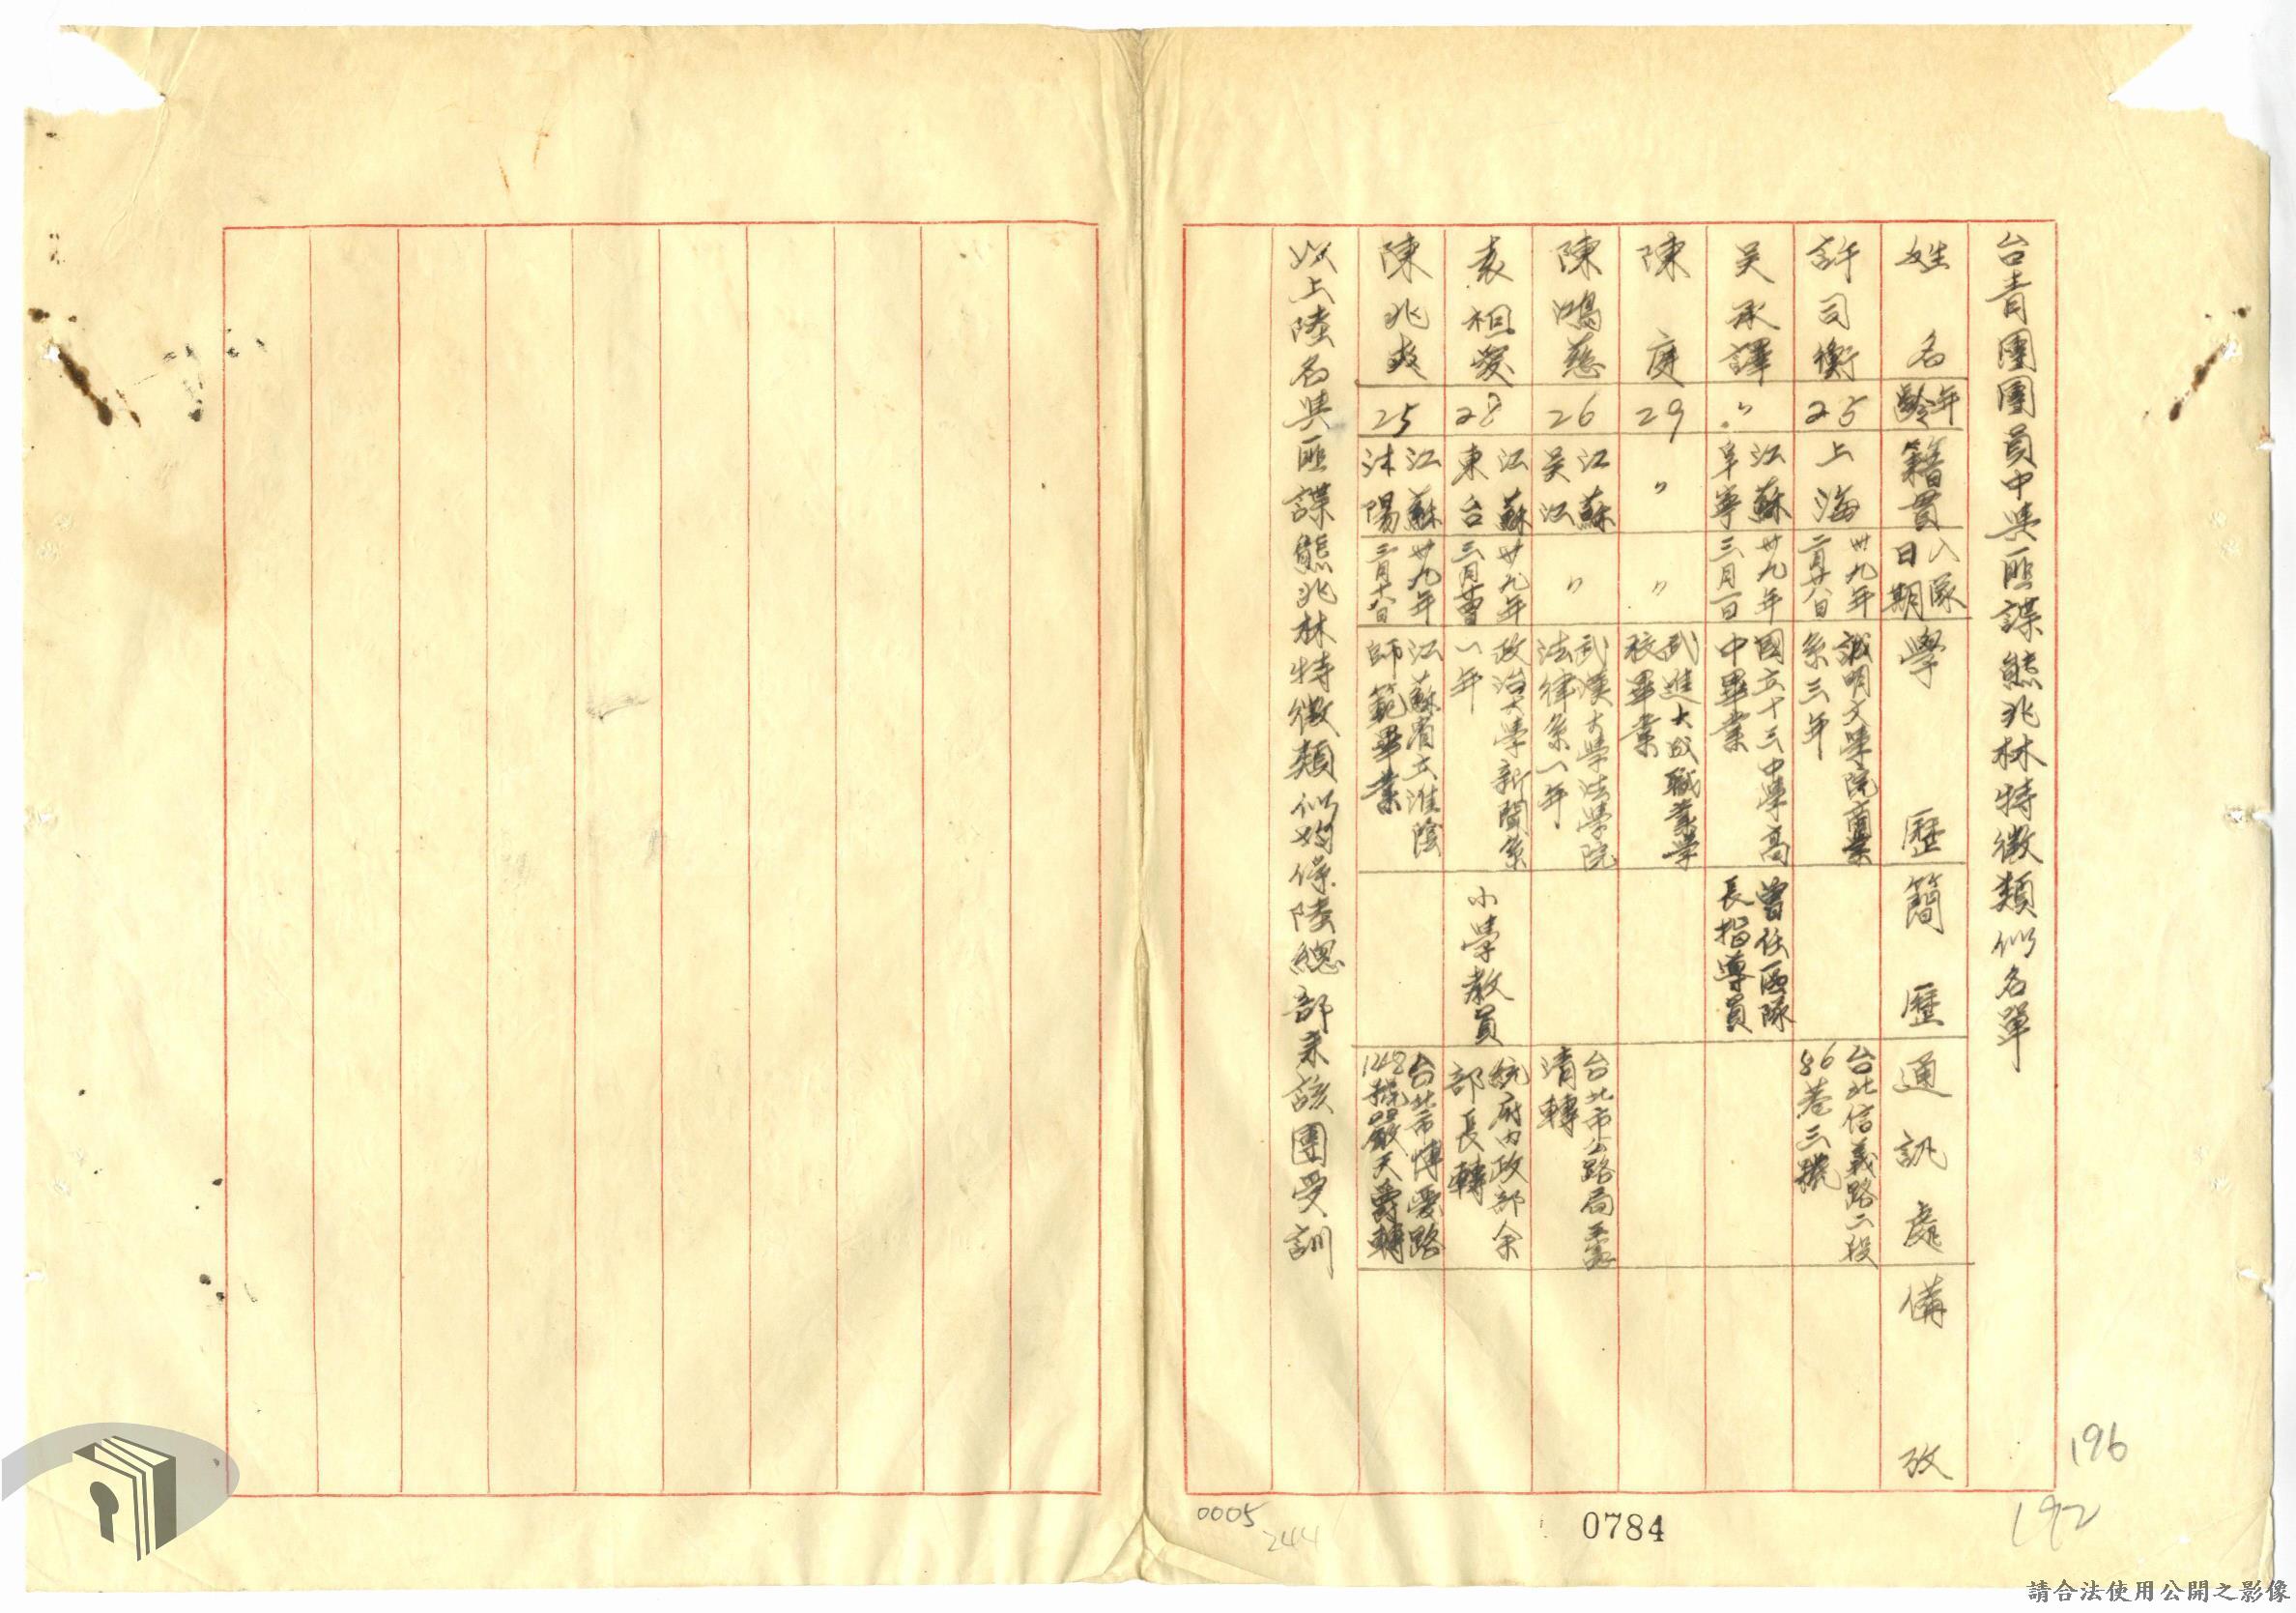 台青團團員中與匪諜熊兆林特徵類似名單
姓名 年齡 籍貫 入隊日期 學歷 簡歷 通訊處 備攷
許司衡 25 上海 卅九年二月廿八日 誠明文學院商業系三年 台北信義路二段86巷三號
吳承譯 〃 江蘇阜寧 卅九年三月一日 國立十三中學高中畢業 曾任區隊長指導員
陳庭 29 〃 〃 武進大成職業學校畢業
陳鴻慈 26 江蘇吳江 〃 武漢大學法學院法律系一年 台北市公路局 清轉
袁祖 28 江蘇東台 卅九年三月 政治大學新聞系一年 小學教員 統府內政部余部長轉
陳兆爽 25 江蘇沭陽 卅九年三月十六日 江蘇省立淮陰師範畢業 台北市博愛路 號嚴天爵轉
以上陸名與匪諜熊兆林特徵類似均係陸總部來該團受訓
196
192
0784
0005
244
請合法使用公開之影像